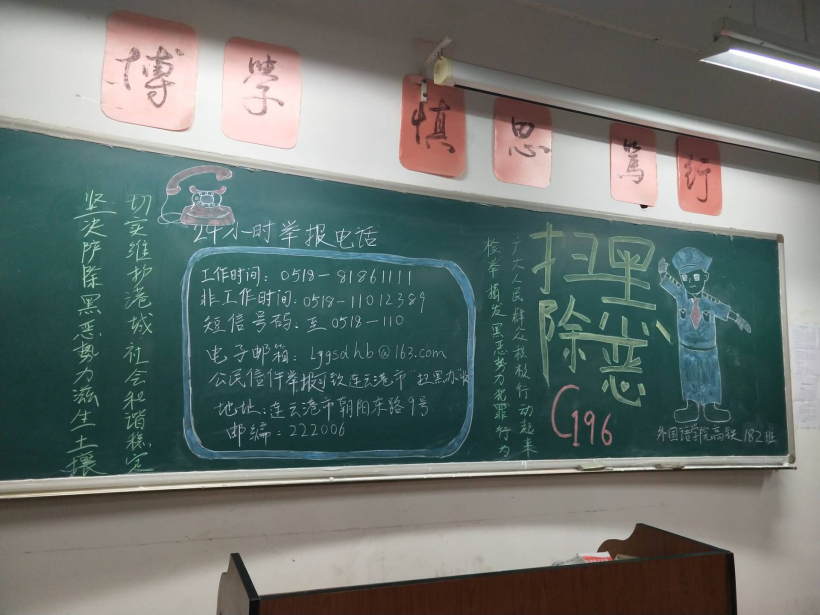 博 学 慎 思 笃 行
坚决铲除黑恶势力滋生土壤
切实维护港城社会和谐稳定
24小时举报电话
工作时间：0518-81861111
非工作时间：0518-11012389
短信号码：至0518-110
电子邮箱：Lygsdhb@163.com
公民信件举报可致连云港市“扫黑办”收
地址：连云港市朝阳东路9号
邮编：222006
广大人民群众积极行动起来
检举揭发黑恶势力犯罪行为
扫黑
除恶
C196
外国语学院高铁182班